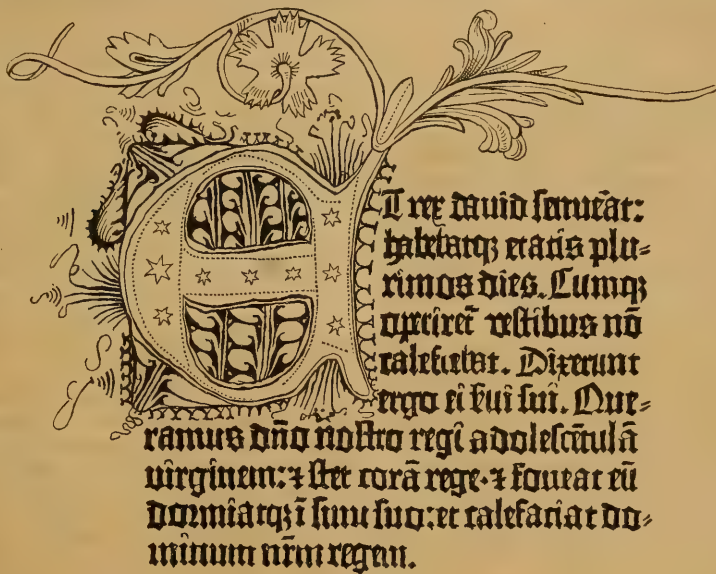 ET rex dauid senuẽat:
habebatqꝫ etatis plu⸗
rimos dies. Cumqꝫ
operiret᷑ vestibus nõ
calefiebat. Dixerunt
ergo ei ẜui sui. Que⸗
ramus dño nostro regi adolescẽtulã
uirginem: ⁊ stet corã rege· ⁊ foueat eũ
dormiatqꝫ ĩ sinu suo: et calefaciat do⸗
minum nr̃m regem.